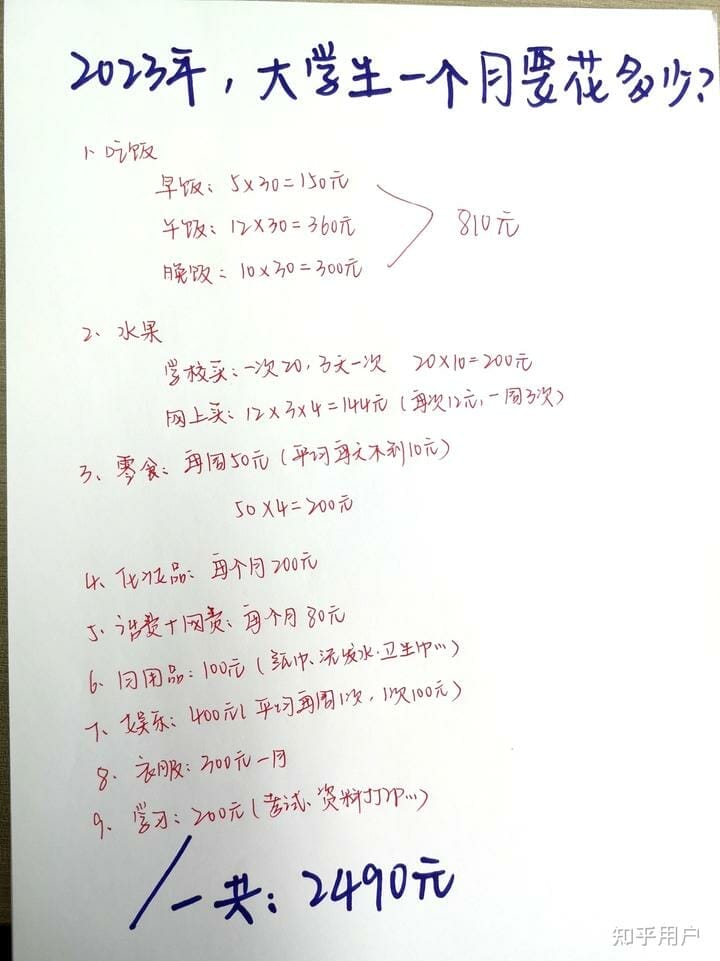 2023年，大学生一个月要花多少？
1、吃饭
早饭：5×30=150元
午饭：12×30=360元
810元
晚饭：10×30=300元
2、水果
学校买：一次20，3天一次 20×10=200元
网上买：12×3×4=144元（每次12元，一周3次）
3、零食：每周50元（平均每天不到10元）
50×4=200元
4、化妆品：每个月200元
5、话费+网费：每个月80元
6、日用品：100元（纸巾、洗发水、卫生巾…）
7、娱乐：400元（平均每周1次，1次100元）
8、衣服：300元一月
9、学习：200元（考试、资料打印…）
一共：2490元
知乎用户